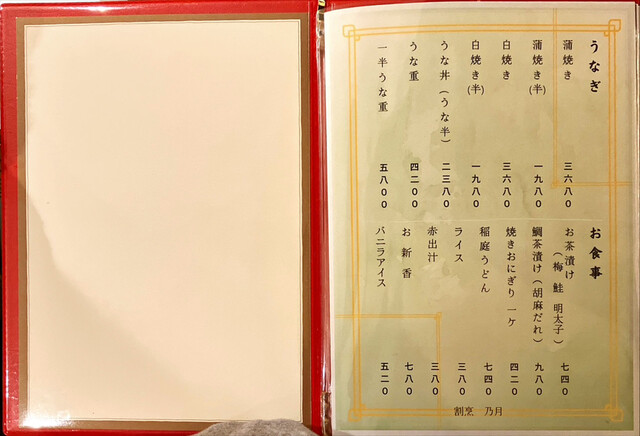 うなぎ
蒲焼き 三六八0
蒲焼き(半) 一九八0
白焼き 三六八0
白焼き(半) 一九八0
うな丼(うな半) 二三八0
うな重 四二00
一半うな重 五八00
お食事
お茶漬け
(梅 鮭 明太子) 七四0
鯛茶漬け(胡麻だれ) 九八0
焼きおにぎり 一ケ 四二0
稲庭うどん 七四0
ライス 三八0
赤出汁 三八0
お新香 七八0
バニラアイス 五二0
割烹 乃月